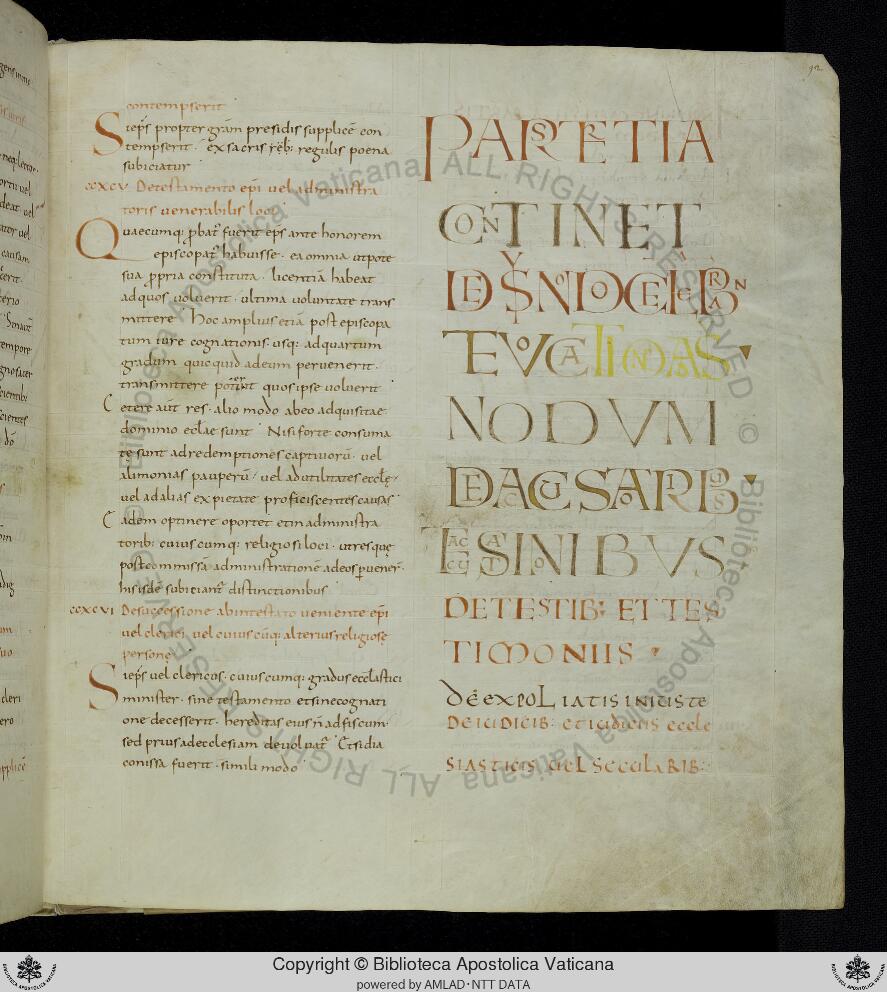 92
contempserit
Si ep̄s propter gr̄am presidis supplicē con
tempserit · ex sacris reb: regulis poena
subiciatur
ccxcv De testamento ep̄i vel administra
toris venerabilis loci
Quaecumq: p̄bat͛ fuerit ep̄s ante honorem
episcopat͛ habuisse · ea omnia utpote
sua p̄pria constituta · licentiā habeat
ad quos voluerit · ultima voluntate trans
mittere · hoc amplius etiā post episcopa
tum iure cognationis usq: ad quartum
gradum quicquid ad eum pervenerit ·
transmittere quos ipse voluerit
Cetere aūt res · alio modo ab eo adquisitae
dominio eclae sunt · Nisi forte consuma
tę sunt ad redemptiones captivorū · vel
alimonias pauperū · vel ad utilitates ecclę ·
vel ad alias ex pietate proficiscentes causas
Eadem optinere oportet et in administra
torib: cuiuscumq: religiosi loci · ut res quę
post commissā administrationē ad eos p̄vener̄
his isdē subiciant͛ distinctionibus
ccxcvi De successione ab intestato veniente ep̄i
vel clerici vel cuiuscūq: alterius religiosę
personę
Si ep̄s vel clericus · cuiuscumq: gradus ecclesiastici
minister · sine testamento et sine cognati
one decesserit · hereditas eius n̄ ad fiscum ·
sed prius ad ecclesiam devolvat͛ · Et si dia
conissa fuerit · simili modo
PARS TERTIA
CONTINET
DE SYNODO CELEBRAN
NODUM
DE ACCUSATORIBUS
DE TESTIB: ET TES
TIMONIIS
DE EXPOLIATIS INIUSTE
DE IUDICIB: ET IUDICIIS ECCLE
SIASTICIS VEL SECULARIB:
© Biblioteca Apostolica Vaticana ALL RIGHTS RESERVED © Biblioteca Apostolica Vaticana ALL RIGHTS RESERVED
Copyright © Biblioteca Apostolica Vaticana
powered by AMLAD·NTT DATA